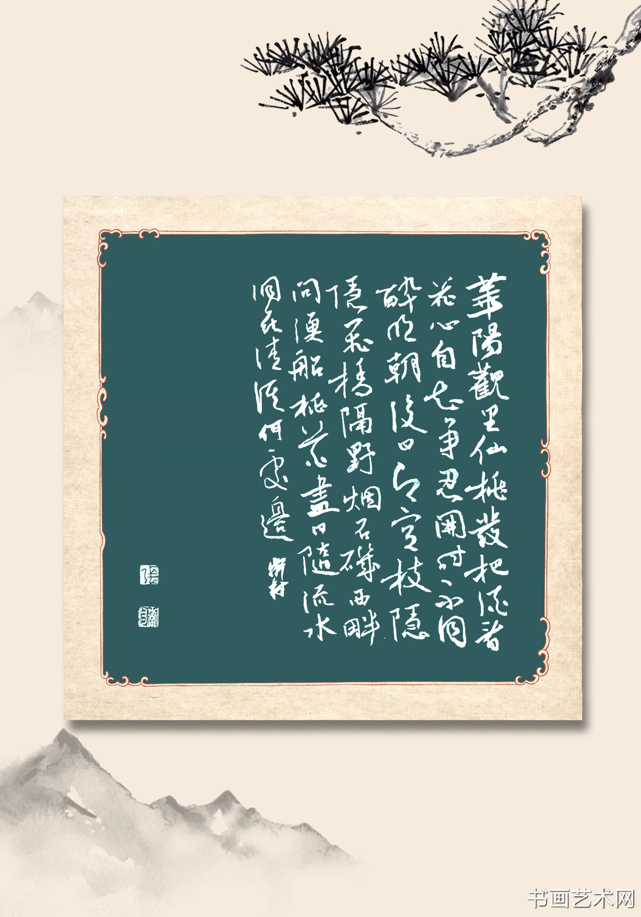 華陽觀里仙桃發把酒看
花心自知争忍開時不同
醉明朝後日即空枝隱
隱飛橋隔野烟石磯西畔
問漁船桃花盡日隨流水
洞在清溪何處邊
书画艺术网